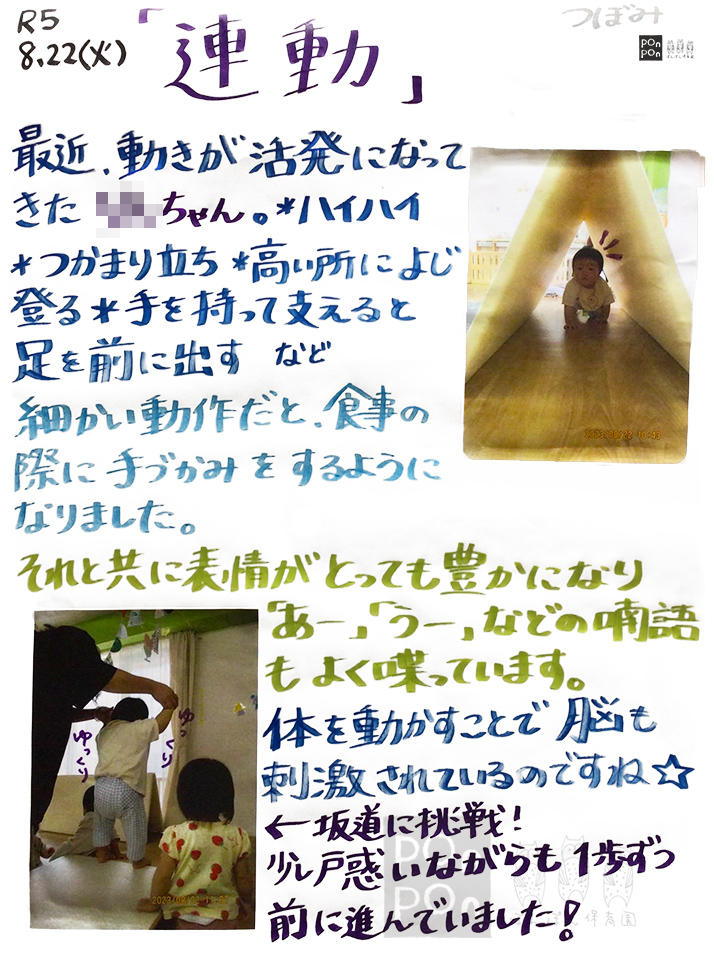 R5
8.22(火)
「連動」
つぼみ
PON
PON
最近、動きが活発になって
きた ちゃん。*ハイハイ
*つかまり立ち *高い所によじ
登る *手を持って支えると
足を前に出す など
細かい動作だと、食事の
際に手づかみをするように
なりました。
それと共に表情がとっても豊かになり
「あー」「うー」などの喃語
もよく喋っています。
体を動かすことで脳も
刺激されているのですね☆
←坂道に挑戦!
少し戸惑いながらも1歩ずつ
前に進んでいました!
ゆっくり
ゆっくり
2023/08/22 10:43
PON
PON